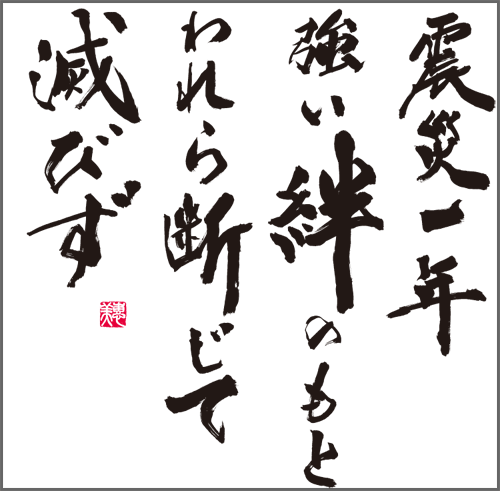 震災一年
強い絆のもと
われら断じて
滅びず
恵美